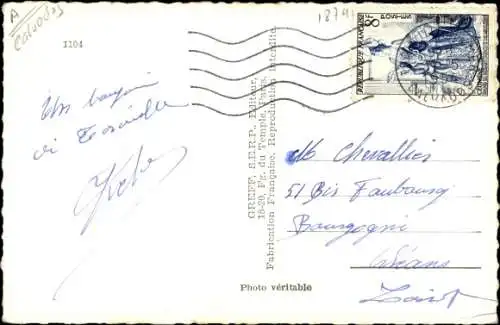 A
Calvados
1879
1104
Un bonjour
de
GREFF, S.E.R.P., Editeur,
18-20, Fr. du Temple, Paris.
Fabrication Française. Reproduction interdite
RÉPUBLIQUE FRANÇAISE
8F
POSTES
M Chevallier
51 Bis Faubourg
Bourgogne
Orléans
Loiret
Photo véritable